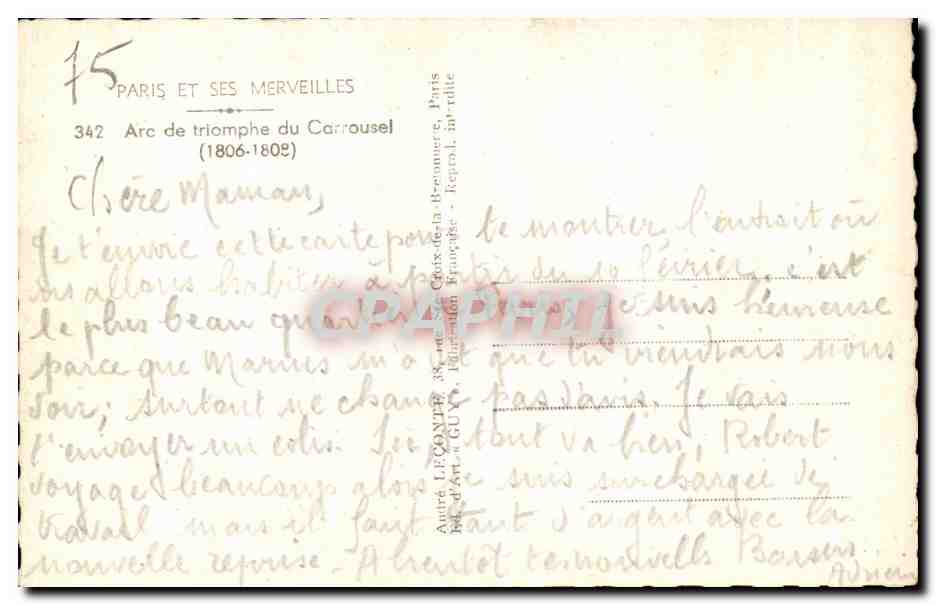 75
PARIS ET SES MERVEILLES
342 Arc de triomphe du Carrousel
(1806-1808)
Chère Maman,
Je t'envoie cette carte pour te montrer l'endroit où
ns allons habiter à partir du 19 février, c'est
le plus beau quartier Je suis heureuse
parce que Marius m'a dit que tu viendrais nous
voir; surtout ne change pas d'avis. Je vais
t'envoyer un colis. Ici tout va bien, Robert
voyage beaucoup alors je suis surchargée de
travail mais il faut tant d'argent avec la
nouvelle reprise - A bientôt tes nouvelles Baisers
André LECONTE, 38, rue Ste-Croix-de-la-Bretonnerie, Paris
Ed. d'Art « GUY ». Fabrication Française - Reprod. interdite
CPAPHIL